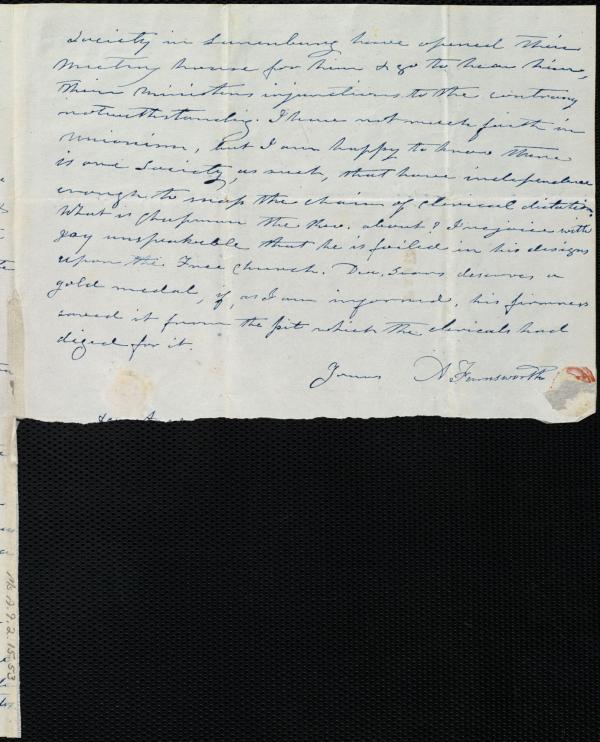 Society in Lunenburg have opened their
meeting house for him & go to hear him,
their ministers injunctions to the contrary
notwithstanding. I have not much faith in
Unionism, but I am happy to know there
is one Society, as such, that have independence
enough to snap the chain of clerical dictation.
What is Chapman the Rev. about? I rejoice with
joy unspeakable that he is foiled in his designs
upon the Free Church. Dea. Sears deserves a
gold medal, if, as I am informed, his firmness
saved it from the pit which the clericals had
diged for it.
Yours A. Farnsworth
Ms A.9.2.15.53